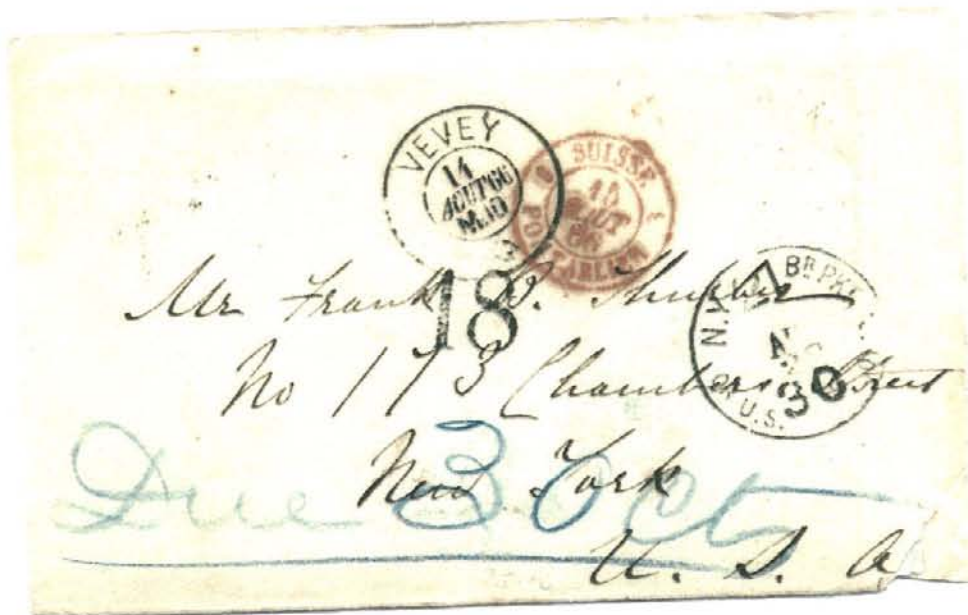 VEVEY
14
AOUT 66
SUISSE
15
AOUT
66
PONTARLIER
18
N.Y. BR PKT
30
U.S.
Mr Frank B. Thurber
No 173 Chambers Street
New York
U. S. A
Due 30 cts